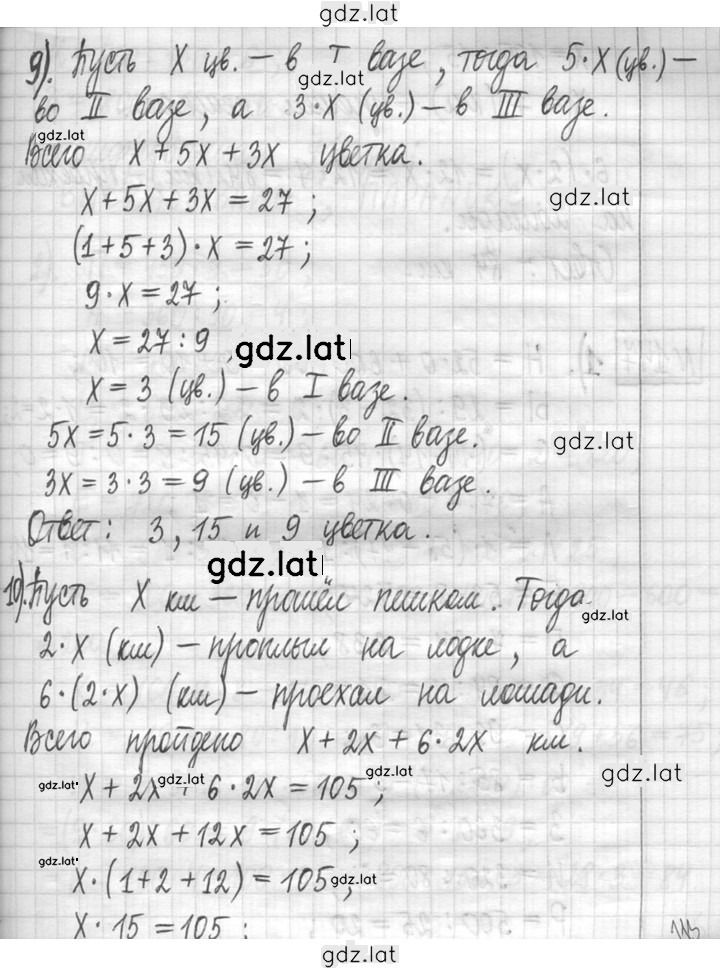 gdz.lat
9). Пусть X цв. – в I вазе, тогда 5·X (цв.) –
gdz.lat
во II вазе, а 3·X (цв.) – в III вазе.
gdz.lat
Всего X + 5X + 3X цветка.
X + 5X + 3X = 27 ;
gdz.lat
(1+5+3)·X = 27 ;
9·X = 27 ;
X = 27 : 9
gdz.lat
X = 3 (цв.) – в I вазе.
5X = 5·3 = 15 (цв.) – во II вазе.
gdz.lat
3X = 3·3 = 9 (цв.) – в III вазе.
Ответ: 3, 15 и 9 цветка.
gdz.lat
10). Пусть X км – прошёл пешком. Тогда
gdz.lat
2·X (км) – проплыл на лодке, а
6·(2·X) (км) – проехал на лошади.
Всего пройдено X + 2X + 6·2X км.
gdz.lat
gdz.lat
gdz.lat
gdz.lat
X + 2X + 6·2X = 105 ;
X + 2X + 12X = 105 ;
gdz.lat
X·(1+2+12) = 105 ;
gdz.lat
X·15 = 105 ;
gdz.lat